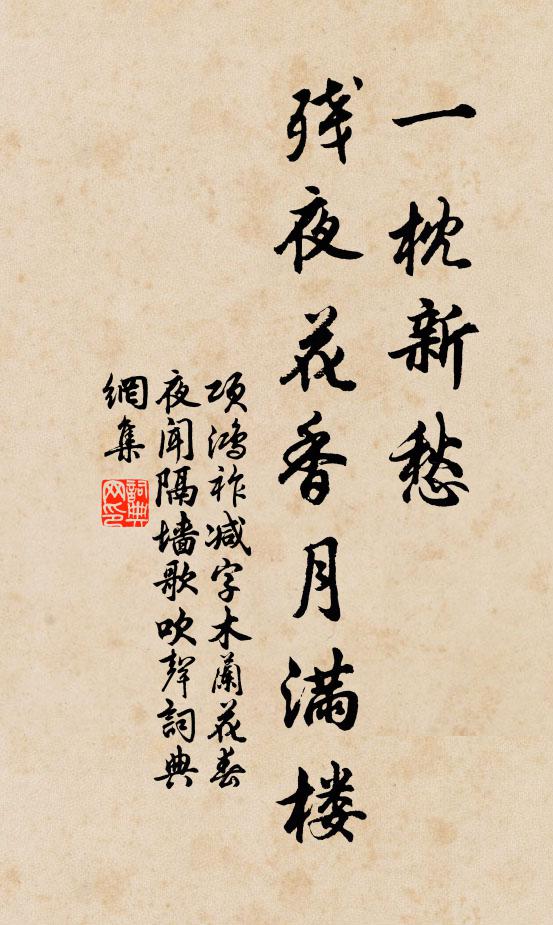 一枕新愁
残夜花香月满楼
项鸿祚减字木蘭花春
夜闻隔墙歌吹聲詞典
網集
詞典
网印